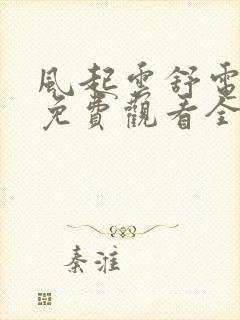 風起雲舒電
免費觀看全
秦淮